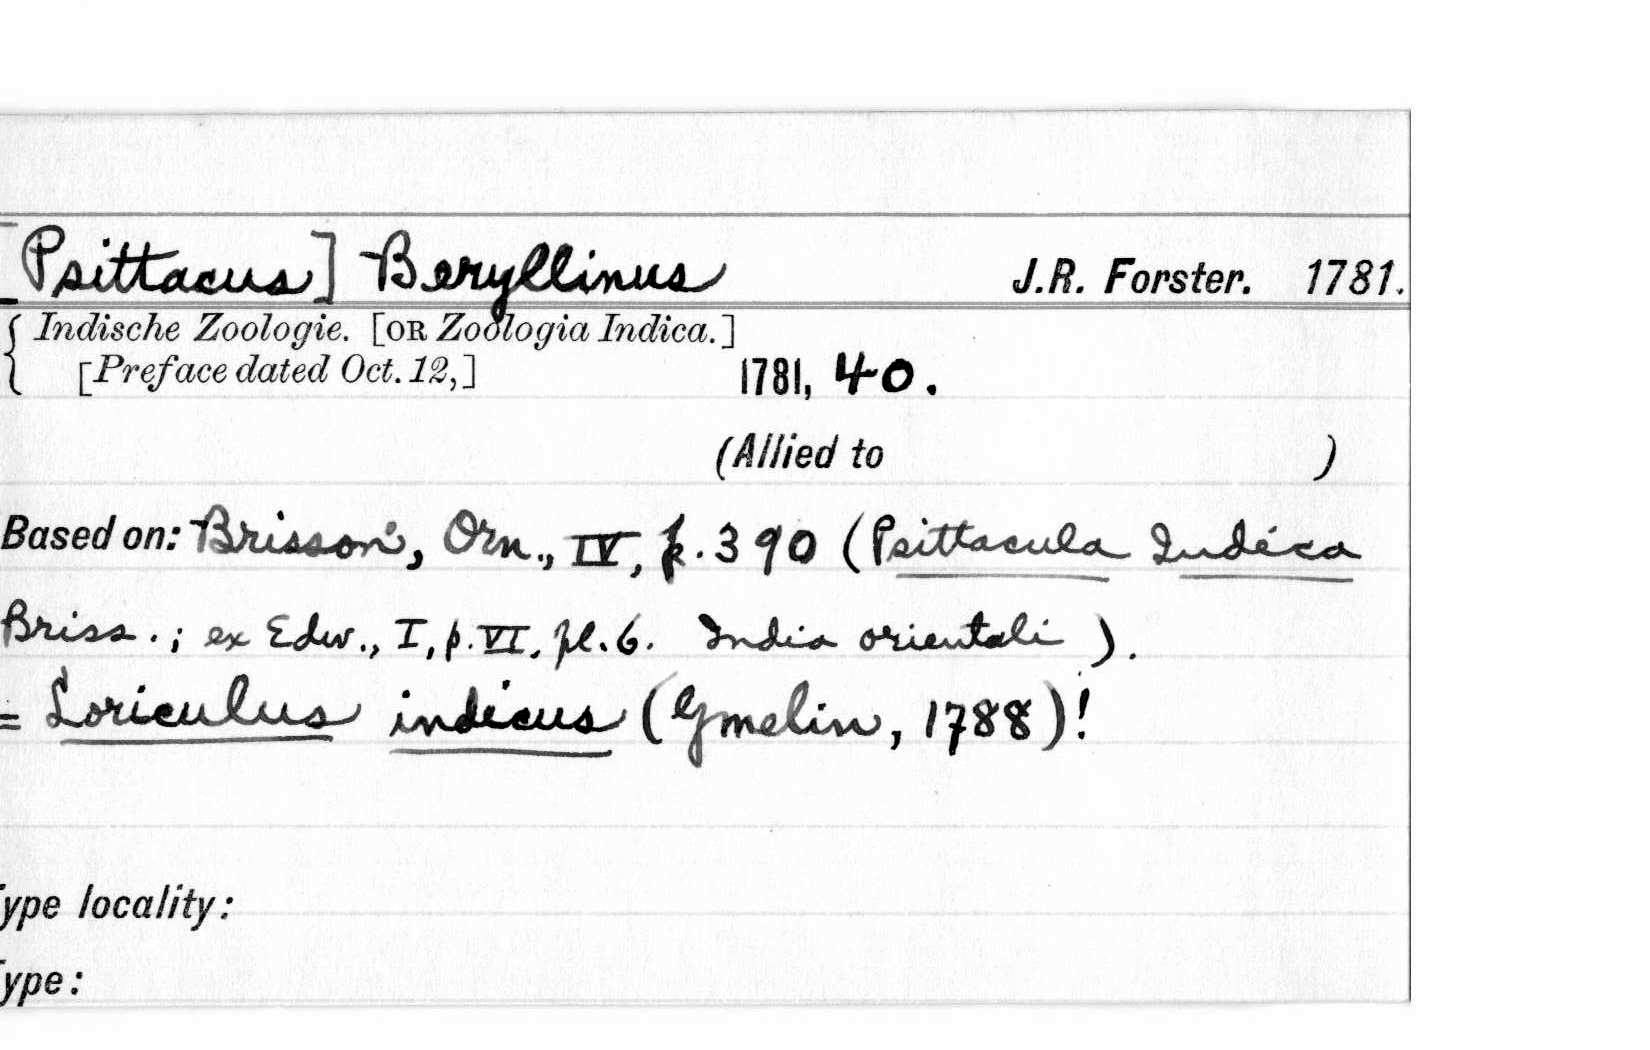 [Psittacus] Beryllinus J.R. Forster. 1781.
Indische Zoologie. [OR Zoologia Indica.]
[Preface dated Oct. 12,] 1781, 40.
(Allied to )
Based on: Brisson, Orn., IV, p. 390 (Psittacula Indica
Briss.; ex Edw., I, p. VI, pl. 6. India orientali).
= Loriculus indicus (Gmelin, 1788)!
ype locality:
ype: